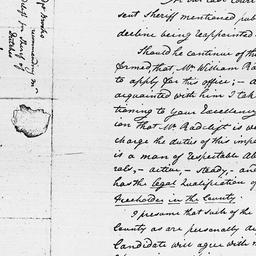 sent Sheriff mentioned pub
decline being reappointed
Should he continue of th
formed, that Mr. William Ra
to apply for this office; - A
acquainted with him I tak
tioning to your Excellency
ion that Mr. Radcleft is we
charge the duties of this impo
is a man of respectable Ab
rals, - active, - steady, - and
has the legal Qualification of
Freeholder in the County.
I presume that such of the
County as are personally ac
Candidate will agree with m
recommending Mr